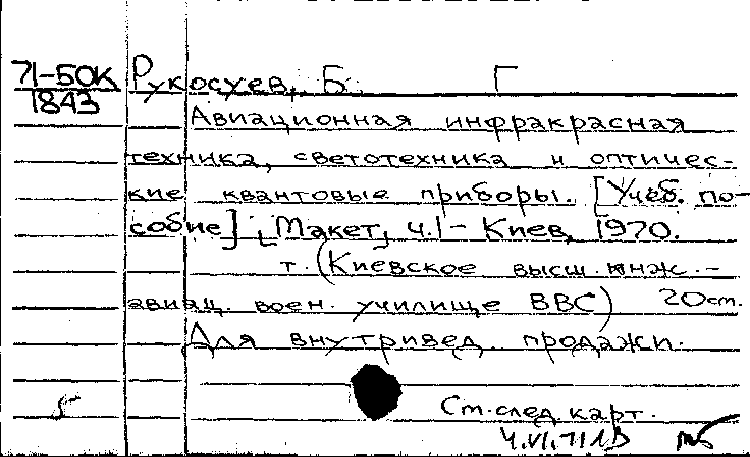 71-БОК Рукосуев, Б. Г
1843
Авиационная инфракрасная
техника, светотехника и оптичес-
кие квантовые приборы. [Учеб. по-
собие] [Макет] ч.1 - Киев, 1970.
т. (Киевское высш. инж.-
авиац. воен. училище ВВС) 20см.
Для внутривед. продажи.
См. след. карт.
4.VI.71